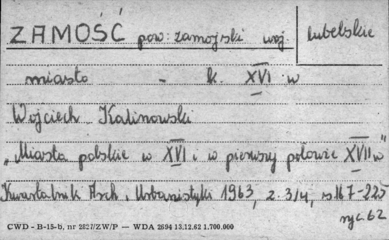 ZAMOŚĆ pow. zamojski woj. lubelskie
miasto - k. XVI w
Wojciech Kalinowski
„Miasta polskie w XVI i w pierwszej połowie XVII w"
Kwartalnik Arch. i Urbanistyki 1963, z. 3/4, s. 167-225
ryc. 62
CWD - B-15-b, nr 2827/ZW/P — WDA 2694 13.12.62 1.700.000